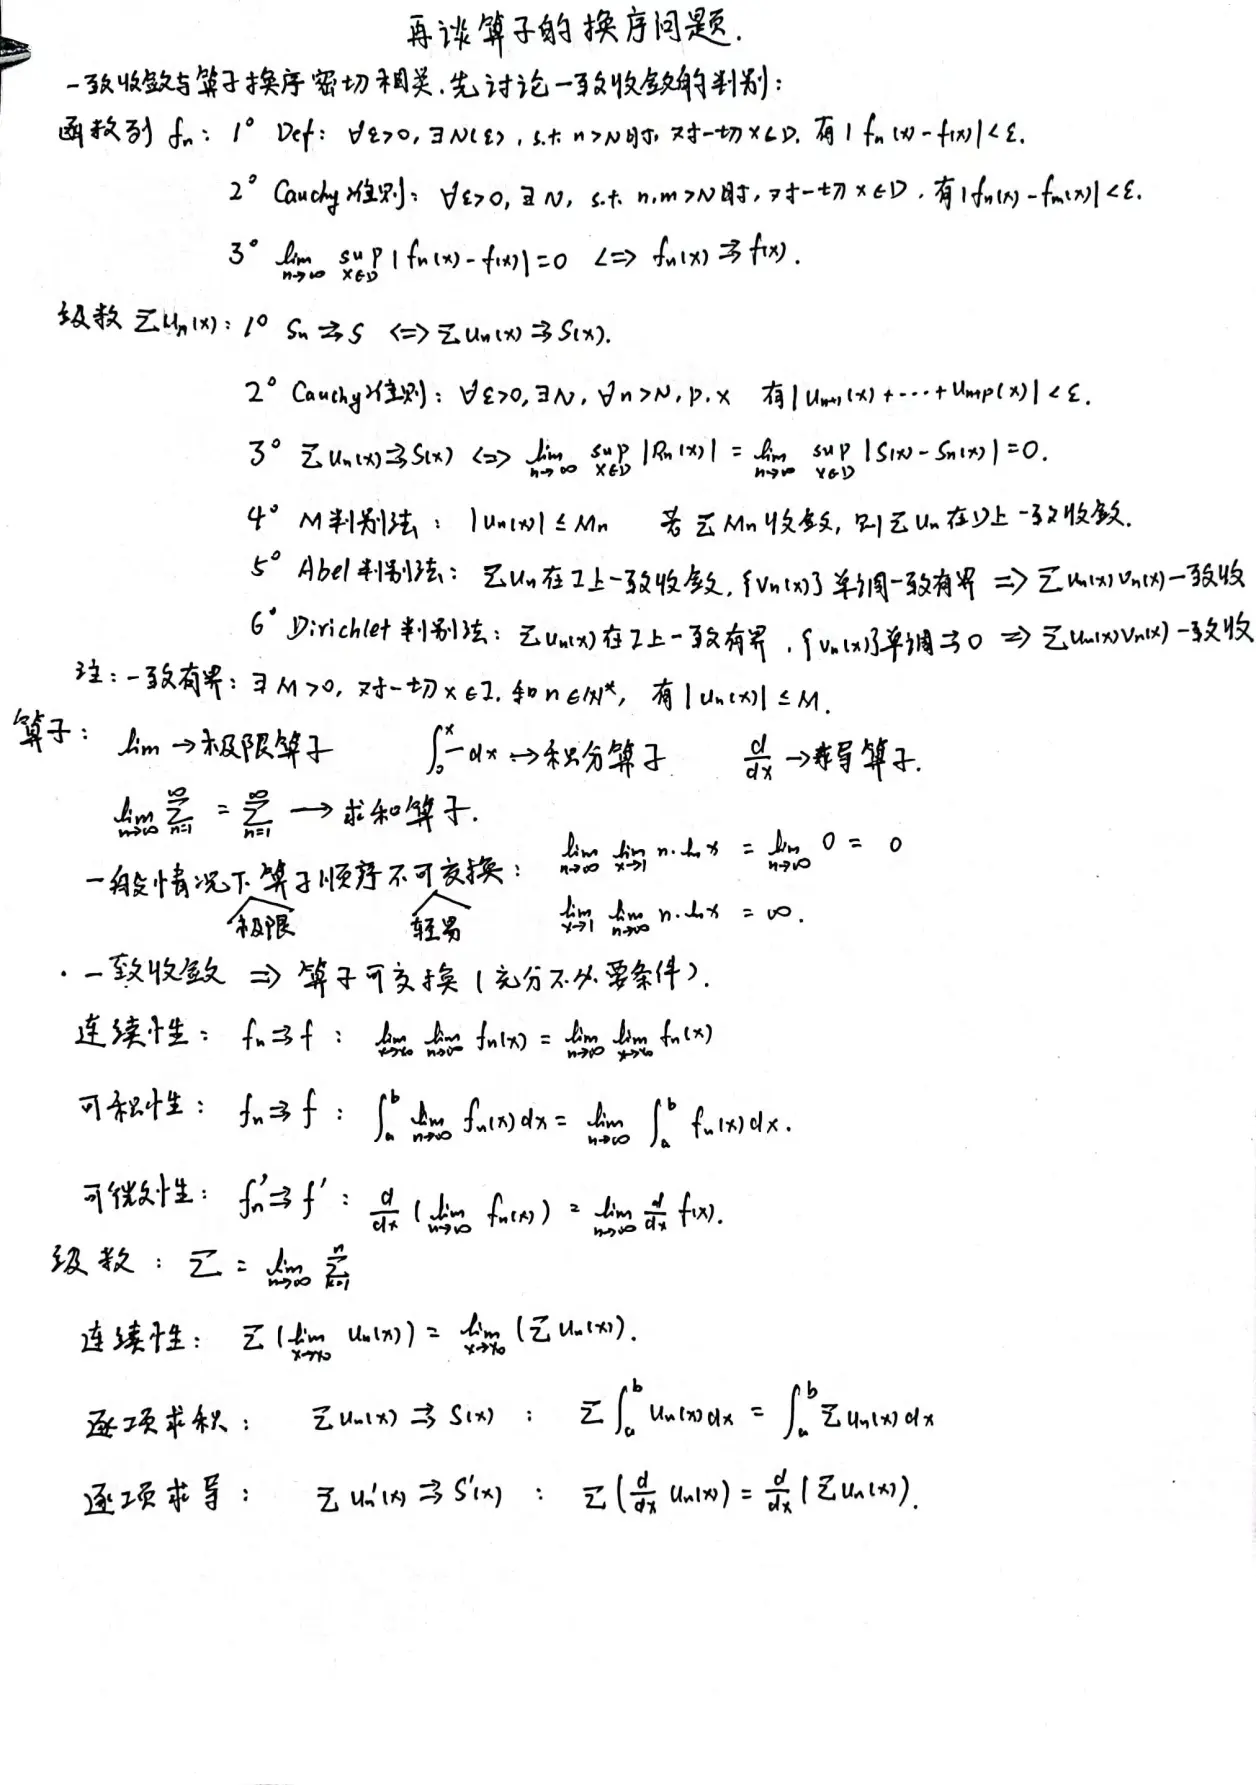 再谈算子的换序问题.
一致收敛与算子换序密切相关.先讨论一致收敛的判别:
函数列 fₙ: 1° Def: ∀ε>0, ∃N(ε), s.t. n>N时, 对一切x∈D, 有|fₙ(x)-f(x)|<ε.
2° Cauchy准则: ∀ε>0, ∃N, s.t. n,m>N时, 对一切x∈D, 有|fₙ(x)-fₘ(x)|<ε.
3° lim_{n→∞} sup_{x∈D} |fₙ(x)-f(x)|=0 <=> fₙ(x)⇉f(x).
级数 ∑uₙ(x): 1° Sₙ⇉S <=> ∑uₙ(x)⇉S(x).
2° Cauchy准则: ∀ε>0, ∃N, ∀n>N, p, x 有|uₙ₊₁(x)+····+uₙ₊ₚ(x)|<ε.
3° ∑uₙ(x)⇉S(x) <=> lim_{n→∞} sup_{x∈D} |Rₙ(x)| = lim_{n→∞} sup_{x∈D} |S(x)-Sₙ(x)|=0.
4° M判别法: |uₙ(x)|≤Mₙ 若∑Mₙ收敛, 则∑uₙ在D上一致收敛.
5° Abel判别法: ∑uₙ在I上一致收敛, {vₙ(x)}单调一致有界 => ∑uₙ(x)vₙ(x)一致收
6° Dirichlet判别法: ∑uₙ(x)在I上一致有界, {vₙ(x)}单调⇉0 => ∑uₙ(x)vₙ(x)一致收
注: 一致有界: ∃M>0, 对一切x∈I, 和n∈ℕ*, 有|uₙ(x)|≤M.
算子: lim→极限算子 ∫₀ˣ—dx→积分算子 d/dx→求导算子.
lim_{n→∞} ∑_{n=1}^{∞} = ∑_{n=1}^{∞} → 求和算子.
一般情况下算子顺序不可交换: lim_{n→∞} lim_{x→1} n·lnx = lim_{n→∞} 0 = 0
极限 轻易 lim_{x→1} lim_{n→∞} n·lnx = ∞.
·一致收敛 => 算子可交换(充分不必要条件).
连续性: fₙ⇉f: lim_{x→x₀} lim_{n→∞} fₙ(x) = lim_{n→∞} lim_{x→x₀} fₙ(x)
可积性: fₙ⇉f: ∫ₐᵇ lim_{n→∞} fₙ(x)dx = lim_{n→∞} ∫ₐᵇ fₙ(x)dx.
可微性: fₙ'⇉f': d/dx (lim_{n→∞} fₙ(x)) = lim_{n→∞} d/dx f(x).
级数: ∑ = lim_{n→∞} ∑_{k=1}^{n}
连续性: ∑(lim_{x→x₀} uₙ(x)) = lim_{x→x₀} (∑uₙ(x)).
逐项求积: ∑uₙ(x)⇉S(x): ∑∫ₐᵇ uₙ(x)dx = ∫ₐᵇ ∑uₙ(x)dx
逐项求导: ∑uₙ'(x)⇉S'(x): ∑(d/dx uₙ(x)) = d/dx (∑uₙ(x)).